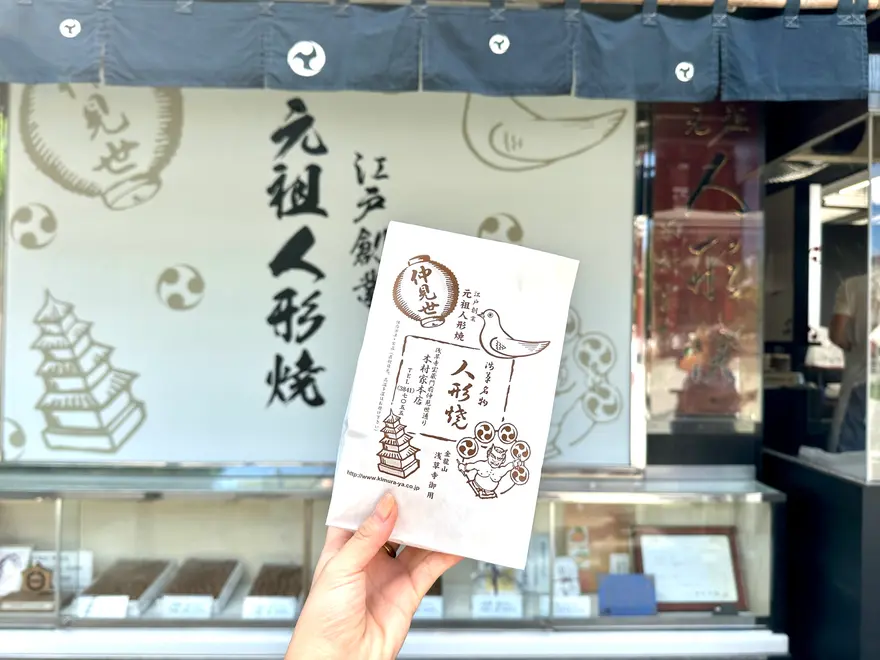 仲見世
江戸創業
元祖人形焼
元祖
人形焼
仲見世
江戸創業
元祖人形焼
浅草名物
人形焼
浅草寺宝蔵門前仲見世通り
木村家本店
TEL(3841)七〇五五
金龍山
浅草寺御用
http://www.kimura-ya.co.jp